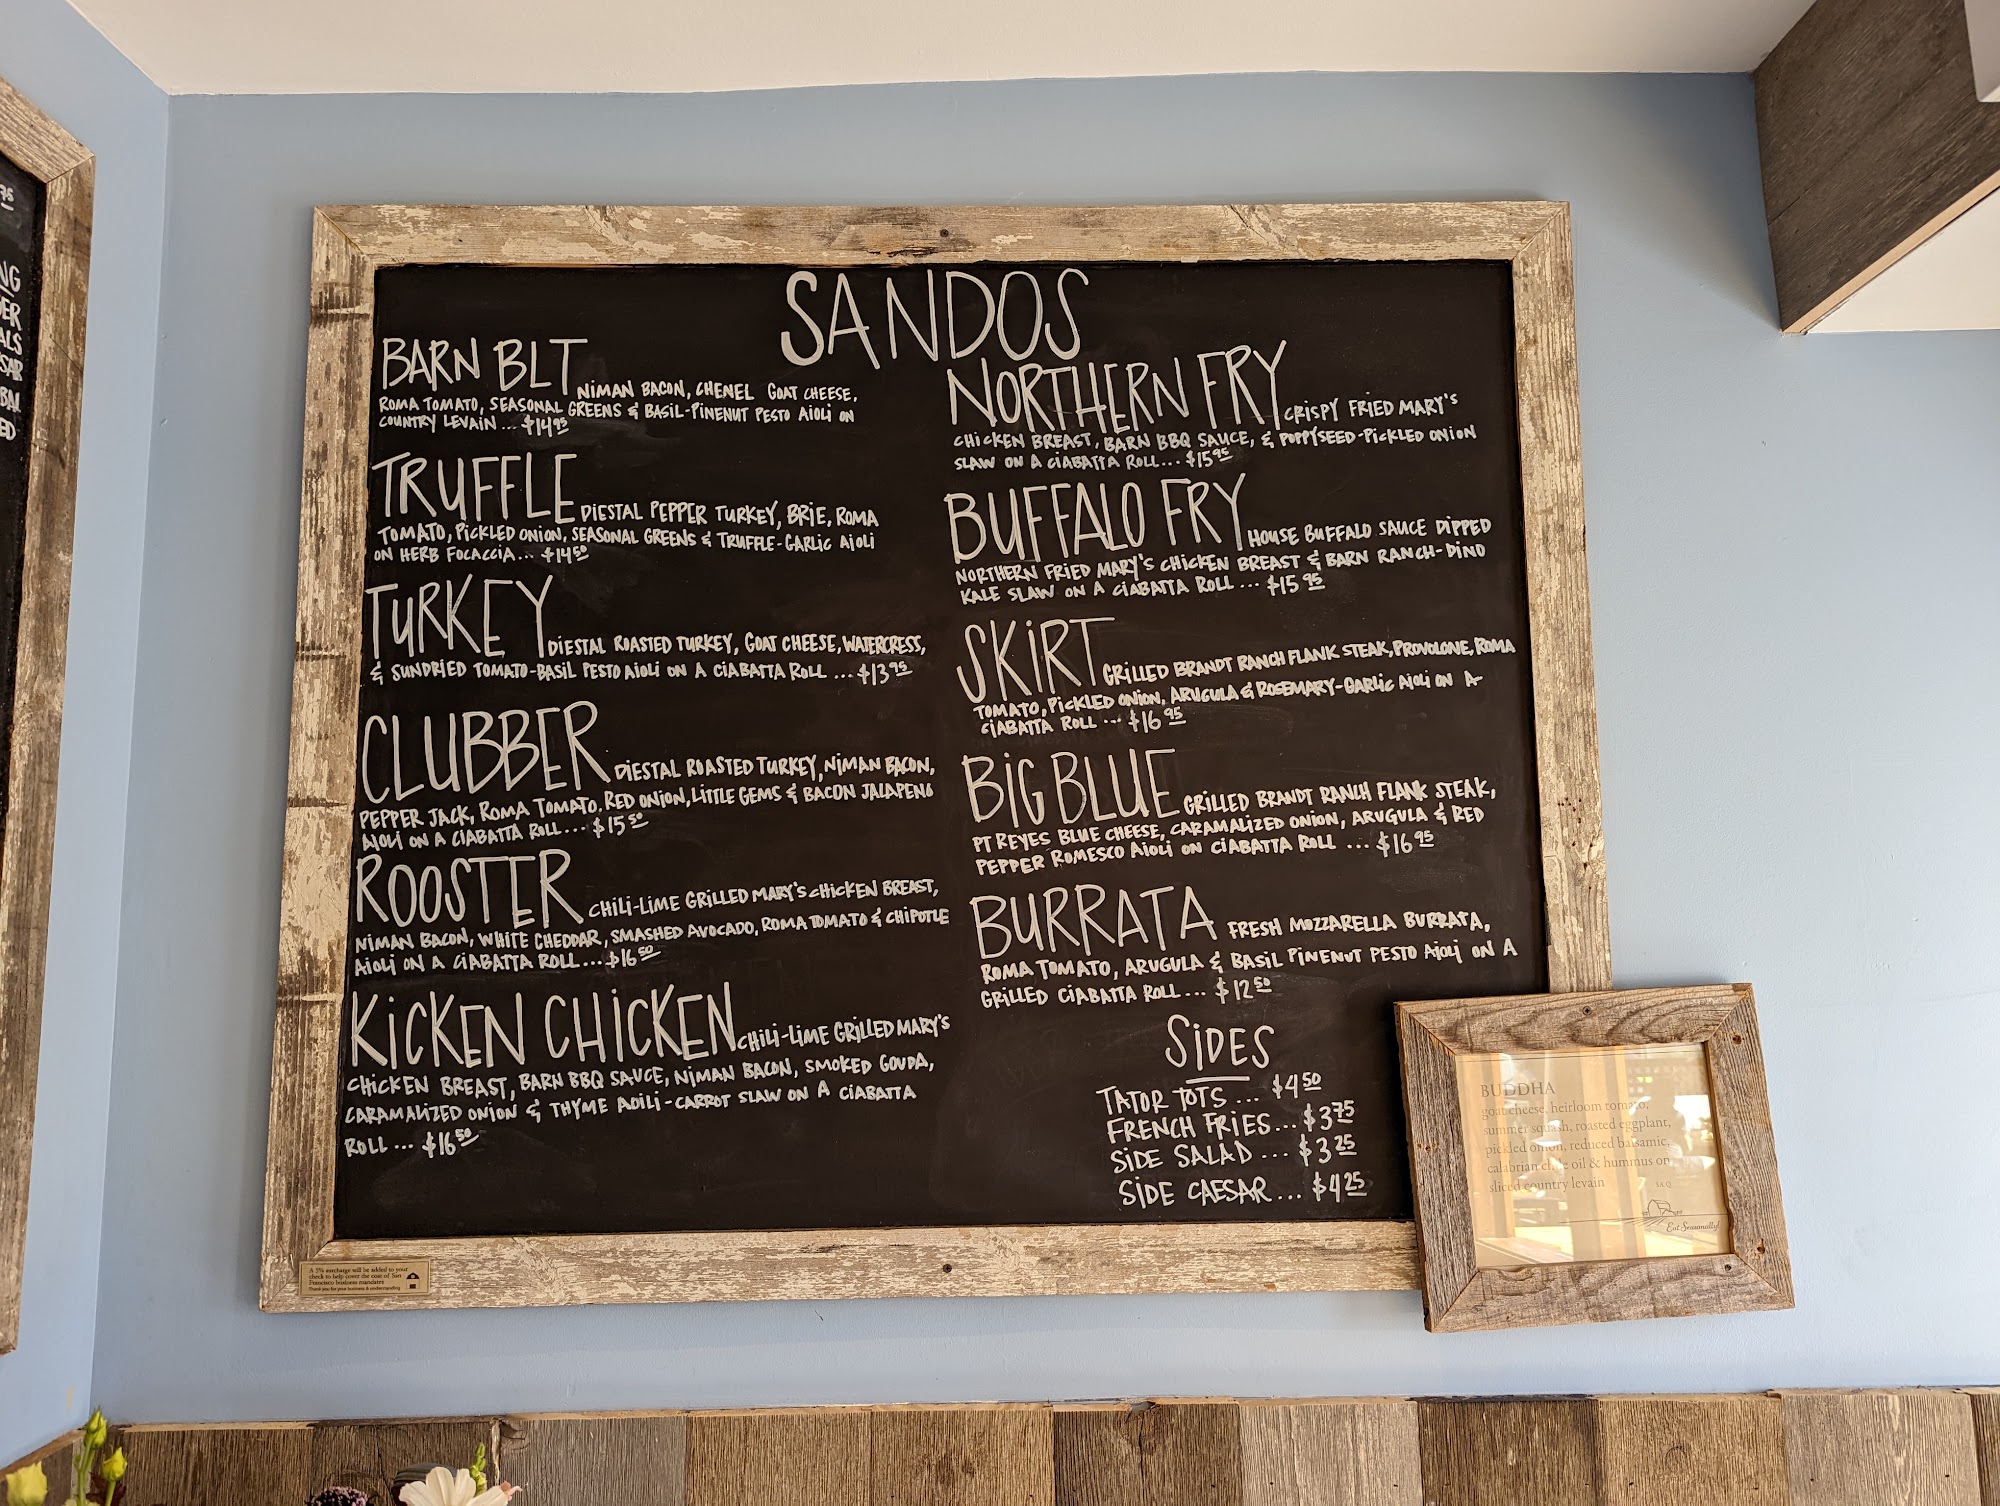 SANDOS
BARN BLT NIMAN BACON, CHENEL GOAT CHEESE,
ROMA TOMATO, SEASONAL GREENS & BASIL-PINENUT PESTO AIOLI ON
COUNTRY LEVAIN ... $14.95
TRUFFLE DIESTAL PEPPER TURKEY, BRIE, ROMA
TOMATO, PICKLED ONION, SEASONAL GREENS & TRUFFLE-GARLIC AIOLI
ON HERB FOCACCIA... $14.50
TURKEY DIESTAL ROASTED TURKEY, GOAT CHEESE, WATERCRESS,
& SUNDRIED TOMATO-BASIL PESTO AIOLI ON A CIABATTA ROLL ... $13.95
CLUBBER DIESTAL ROASTED TURKEY, NIMAN BACON,
PEPPER JACK, ROMA TOMATO, RED ONION, LITTLE GEMS & BACON JALAPENO
AIOLI ON A CIABATTA ROLL... $15.50
ROOSTER CHILI-LIME GRILLED MARY'S CHICKEN BREAST,
NIMAN BACON, WHITE CHEDDAR, SMASHED AVOCADO, ROMA TOMATO & CHIPOTLE
AIOLI ON A CIABATTA ROLL... $16.50
KICKEN CHICKEN CHILI-LIME GRILLED MARY'S
CHICKEN BREAST, BARN BBQ SAUCE, NIMAN BACON, SMOKED GOUDA,
CARAMALIZED ONION & THYME AOILI-CARROT SLAW ON A CIABATTA
ROLL ... $16.50
NORTHERN FRY CRISPY FRIED MARY'S
CHICKEN BREAST, BARN BBQ SAUCE, & POPPYSEED-PICKLED ONION
SLAW ON A CIABATTA ROLL... $15.95
BUFFALO FRY HOUSE BUFFALO SAUCE DIPPED
NORTHERN FRIED MARY'S CHICKEN BREAST & BARN RANCH-DINO
KALE SLAW ON A CIABATTA ROLL ... $15.95
SKIRT GRILLED BRANDT RANCH FLANK STEAK, PROVOLONE, ROMA
TOMATO, PICKLED ONION, ARUGULA & ROSEMARY-GARLIC AIOLI ON A
CIABATTA ROLL ... $16.95
BIG BLUE GRILLED BRANDT RANCH FLANK STEAK,
PT REYES BLUE CHEESE, CARAMALIZED ONION, ARUGULA & RED
PEPPER ROMESCO AIOLI ON CIABATTA ROLL ... $16.95
BURRATA FRESH MOZZARELLA BURRATA,
ROMA TOMATO, ARUGULA & BASIL PINENUT PESTO AIOLI ON A
GRILLED CIABATTA ROLL... $12.50
SIDES
TATOR TOTS ... $4.50
FRENCH FRIES... $3.75
SIDE SALAD ... $3.25
SIDE CAESAR... $4.25
BUDDHA
goat cheese, heirloom tomato,
summer squash, roasted eggplant,
pickled onion, reduced balsamic,
calabrian chile oil & hummus on
sliced country levain
5AQ
Eat Seasonally!
A 5% surcharge will be added to your
check to help cover the cost of San
Francisco business mandates
Thank you for your business & understanding
75
NG
DER
ALS
BAL
ED